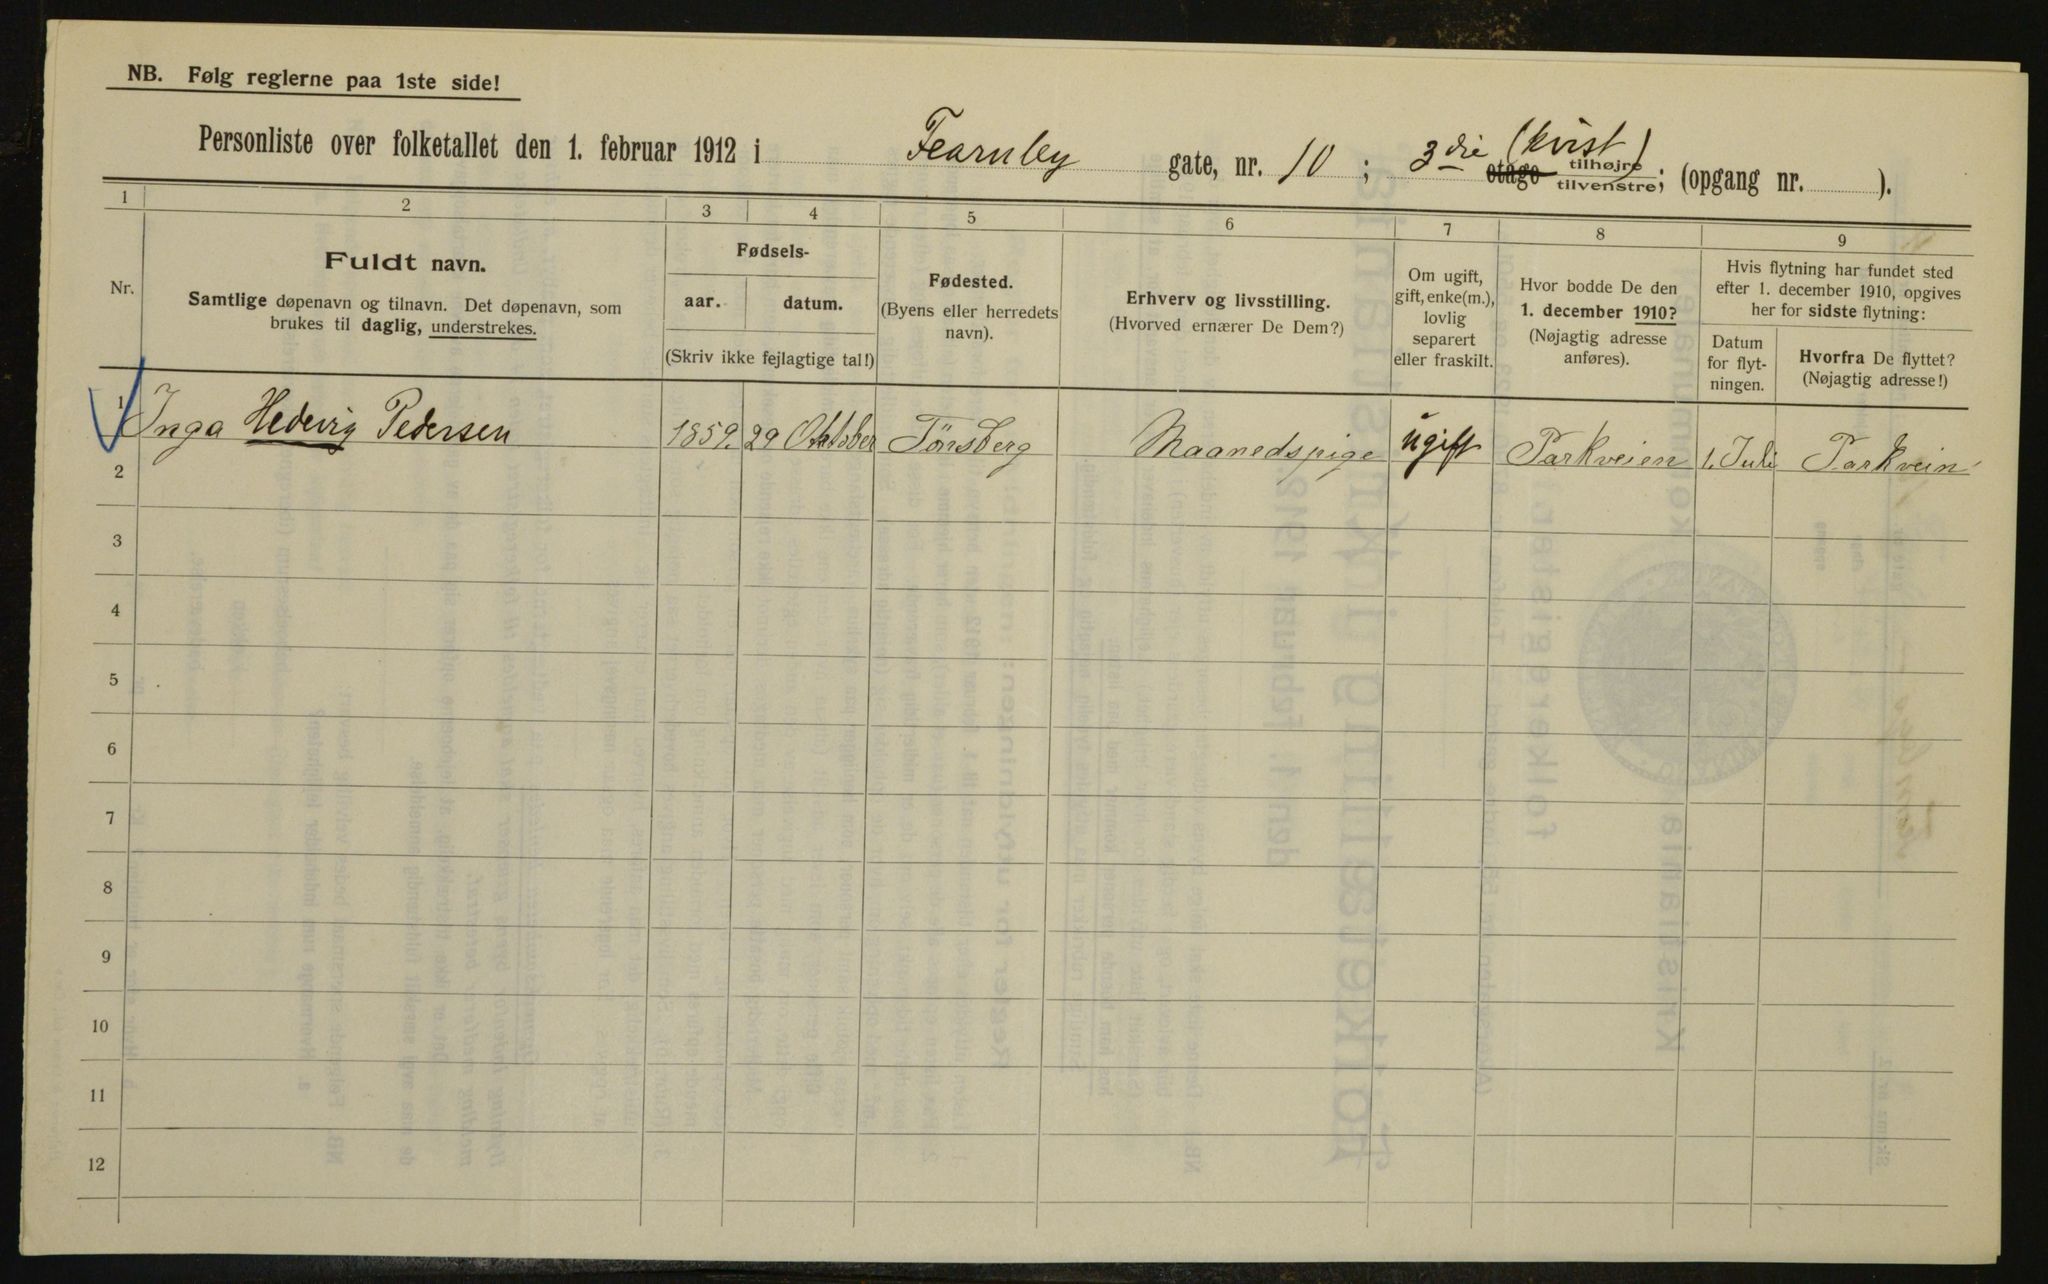 NB. Følg reglerne paa 1ste side!
Personliste over folketallet den 1. februar 1912 i Fearnley gate, nr. 10 ; 3die (kvist) etage tilhøjre tilvenstre; (opgang nr. ).
1 2 3 4 5 6 7 8 9
Nr.
Fuldt navn.
Samtlige døpenavn og tilnavn. Det døpenavn, som
brukes til daglig, understrekes.
Fødsels-
aar. datum.
(Skriv ikke fejlagtige tal!)
Fødested.
(Byens eller herredets
navn).
Erhverv og livsstilling.
(Hvorved ernærer De Dem?)
Om ugift,
gift, enke(m.),
lovlig
separert
eller fraskilt.
Hvor bodde De den
1. december 1910?
(Nøjagtig adresse
anføres).
Hvis flytning har fundet sted
efter 1. december 1910, opgives
her for sidste flytning:
Datum
for flyt-
ningen.
Hvorfra De flyttet?
(Nøjagtig adresse!)
1 Inga Hedevig Pedersen 1859. 29 Oktober Tönsberg Maanedspige ugift Parkveien 1. Juli Parkvein
2
3
4
5
6
7
8
9
10
11
12